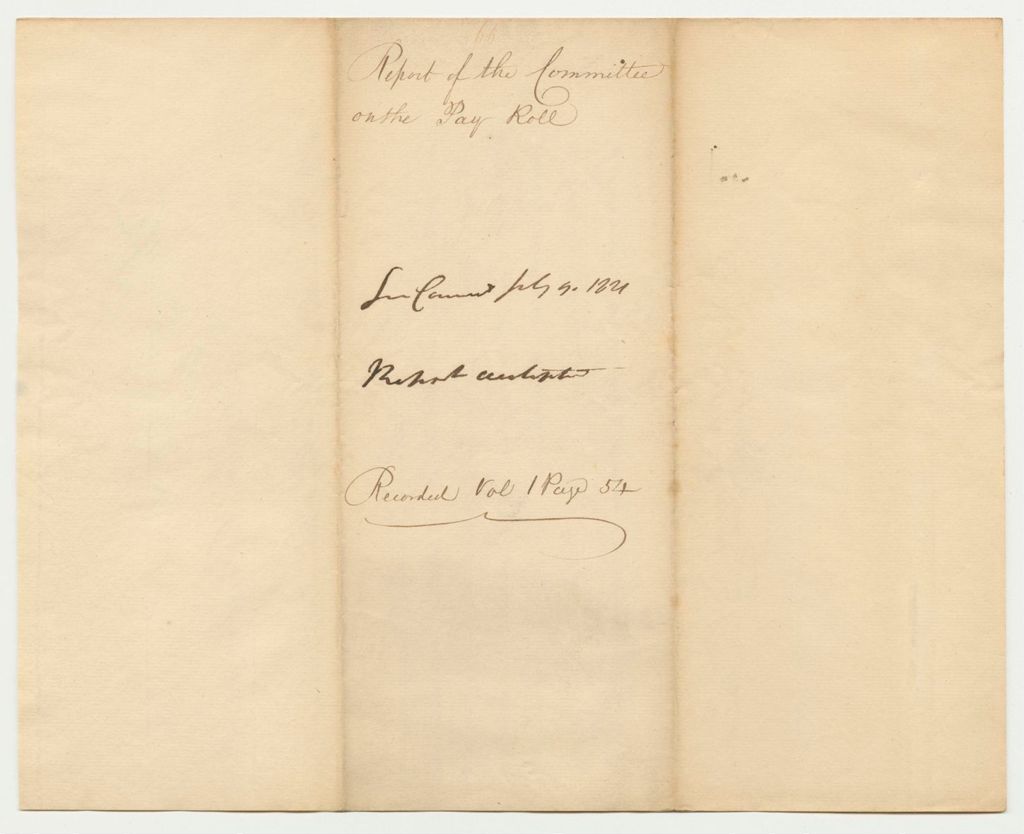 66
Report of the Committee
on the Pay Roll
In Council July 9. 1821
Report accepted
Recorded Vol 1 Page 54